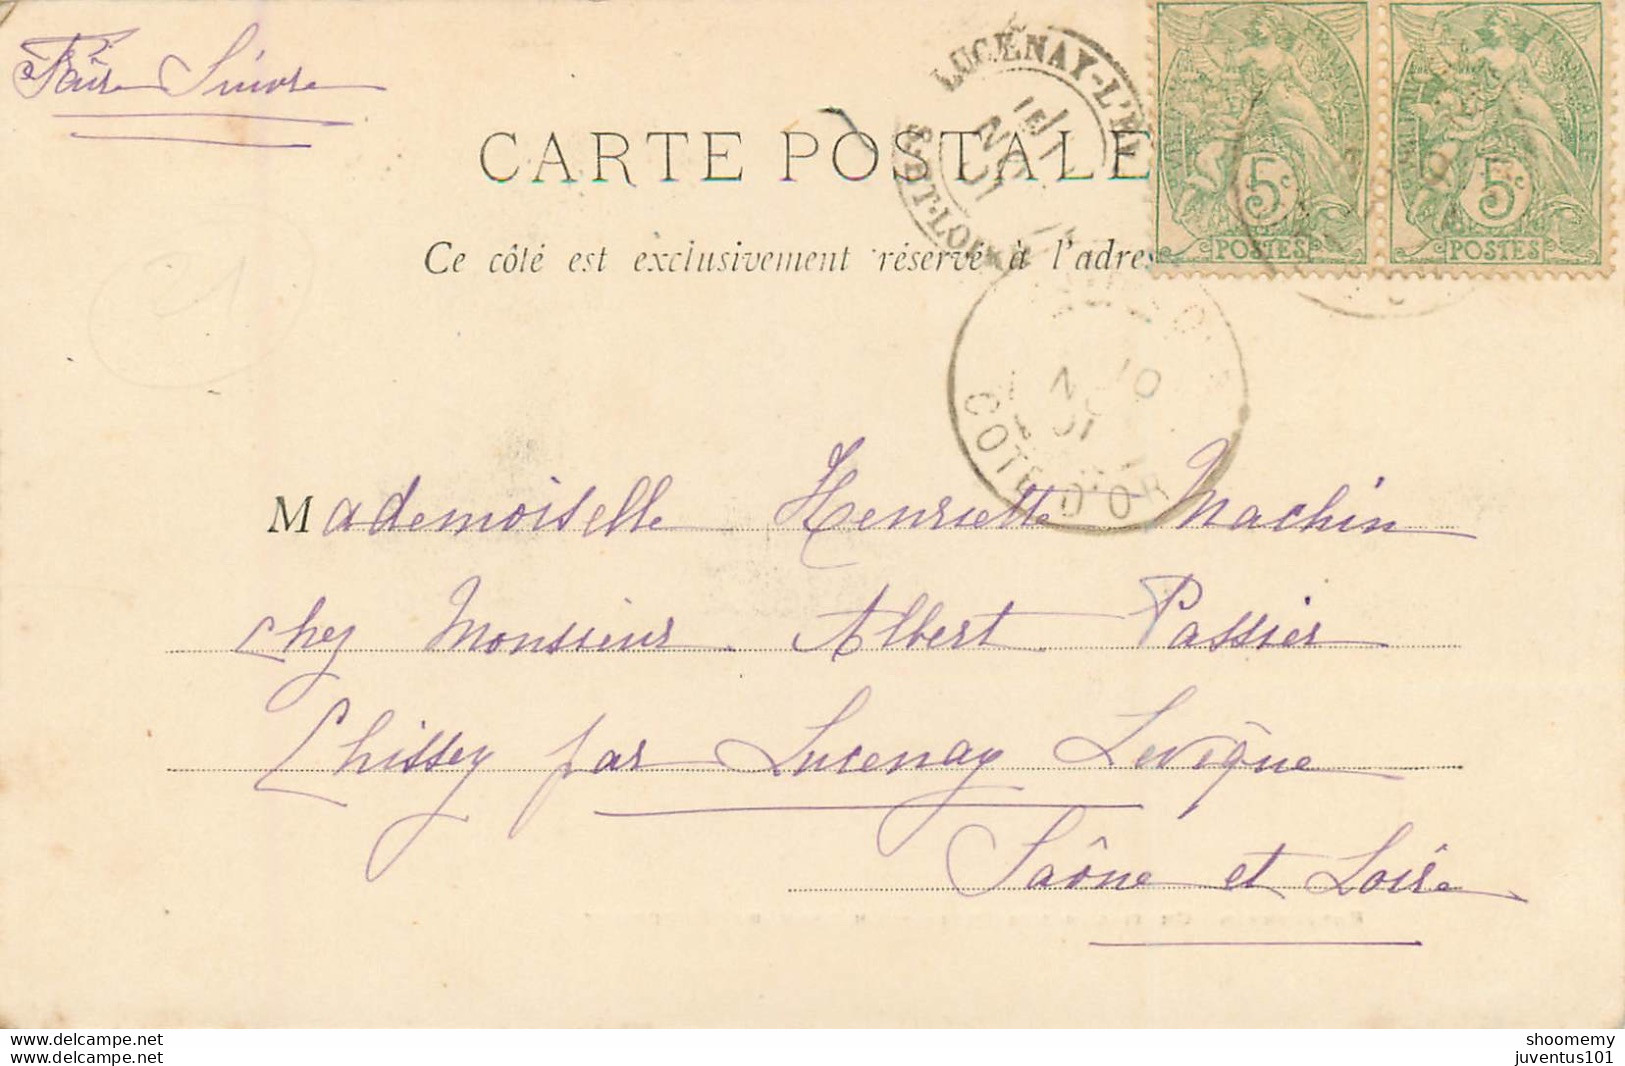 Faire Suivre
CARTE POSTALE
Ce côté est exclusivement réservé à l'adres
LUCENAY-L'EV
S.ET-LOIRE
11
NOV
01
FRANÇAISE
5c
POSTES
5c
POSTES
10
NOV
01
COTE D'OR
Mademoiselle Henriette Machin
chez Monsieur Albert Passier
Chissey par Lucenay Levêque
Saône et Loire
www.delcampe.net
www.delcampe.net
shoomemy
juventus101